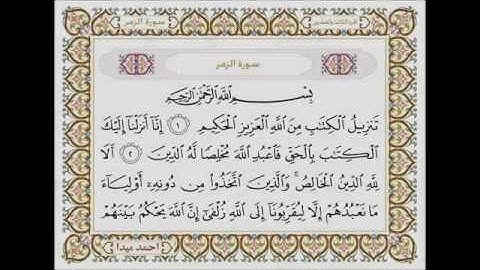 سورة الزمر
الجزء الثالث والعشرون
سورة الزمر
بِسْمِ اللَّهِ الرَّحْمَٰنِ الرَّحِيمِ
تَنزِيلُ الْكِتَابِ مِنَ اللَّهِ الْعَزِيزِ الْحَكِيمِ ١ إِنَّا أَنزَلْنَا إِلَيْكَ
الْكِتَابَ بِالْحَقِّ فَاعْبُدِ اللَّهَ مُخْلِصًا لَّهُ الدِّينَ ٢ أَلَا
لِلَّهِ الدِّينُ الْخَالِصُ ۚ وَالَّذِينَ اتَّخَذُوا مِن دُونِهِ أَوْلِيَاءَ
مَا نَعْبُدُهُمْ إِلَّا لِيُقَرِّبُونَا إِلَى اللَّهِ زُلْفَىٰ إِنَّ اللَّهَ يَحْكُمُ بَيْنَهُمْ
احمد بيدا